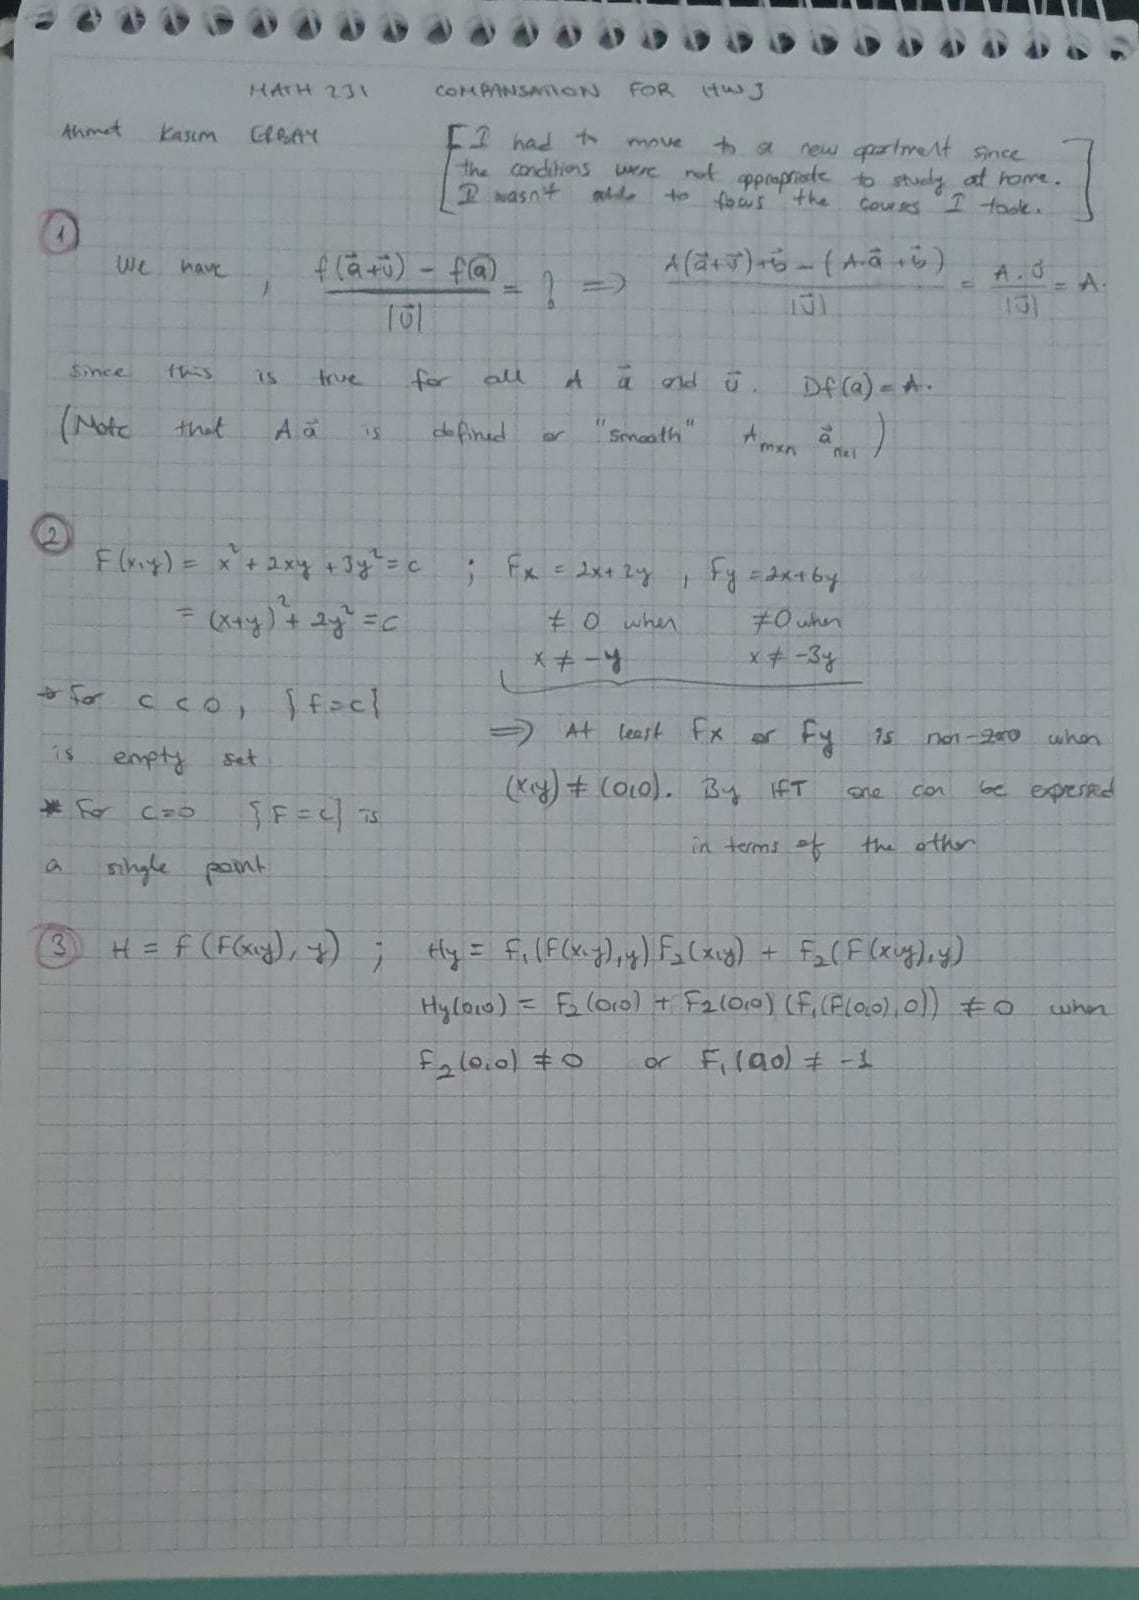 MATH 231 COMPANSATION FOR HW3
Ahmet Kasım ERBAY
[I had to move to a new apartment since
the conditions were not appropriate to study at home.
I wasn't able to focus the courses I took.]
1
We have, f(a⃗+u⃗) - f(a⃗) / |u⃗| = ? ⇒ A(a⃗+u⃗)+b⃗ - (A.a⃗ + b⃗) / |u⃗| = A.u⃗ / |u⃗| = A.
Since this is true for all A a⃗ and u⃗. Df(a) = A.
(Note that A a⃗ is defined or "smooth" A_mxn a⃗_nx1)
2
F(x,y) = x² + 2xy + 3y² = c ; Fx = 2x+2y , Fy = 2x+6y
= (x+y)² + 2y² = c ≠ 0 when ≠ 0 when
x ≠ -y x ≠ -3y
* For c < 0, {F=c}
is empty set
* For c=0 {F=c} is
a single point
⇒ At least Fx or Fy is non-zero when
(x,y) ≠ (0,0). By IFT one can be expressed
in terms of the other
3 H = F(F(x,y), y) ; Hy = F₁(F(x,y),y) F₂(x,y) + F₂(F(x,y),y)
Hy(0,0) = F₂(0,0) + F₂(0,0) (F₁(F(0,0),0)) ≠ 0 when
F₂(0,0) ≠ 0 or F₁(0,0) ≠ -1